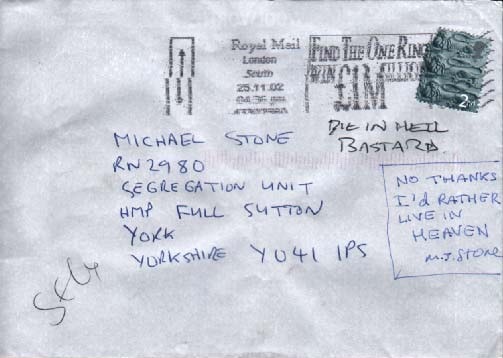 Royal Mail
London
South
25.11.02
FIND THE ONE RING
WIN £1M
2nd
DIE IN HELL
BASTARD
MICHAEL STONE
RN2980
SEGREGATION UNIT
HMP FULL SUTTON
YORK
YORKSHIRE YO41 1PS
NO THANKS
I'd RATHER
LIVE IN
HEAVEN
M.J. STONE